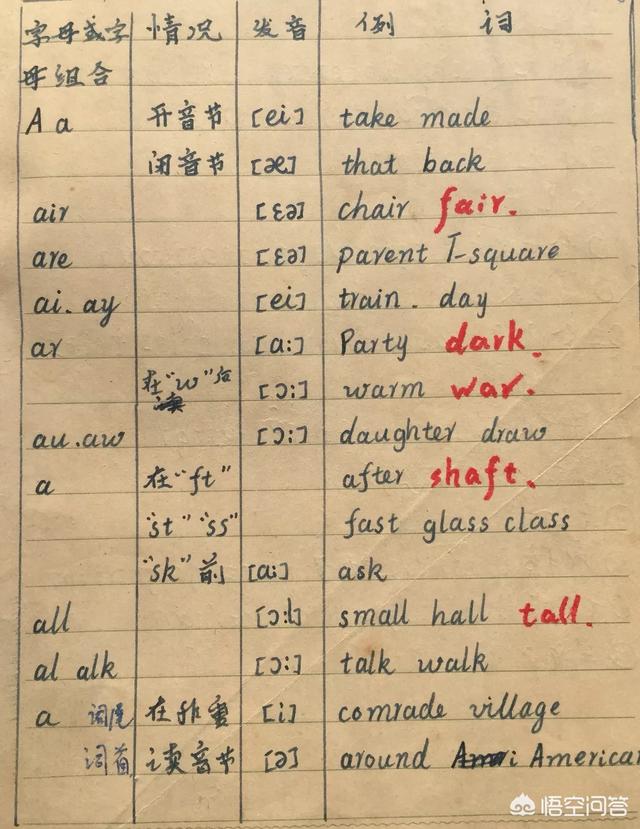 字母或字 情况 发音 例 词
母组合
A a 开音节 [ei] take made
闭音节 [æ] that back
air [ɛə] chair fair.
are [ɛə] parent T-square
ai. ay [ei] train. day
ar [a:] Party dark.
在"w"后 [ɔ:] warm war.
au.aw [ɔ:] daughter draw
a 在"ft" after shaft.
"st" "ss" fast glass class
"sk" 前 [a:] ask
all [ɔ:l] small hall tall.
al alk [ɔ:] talk walk
a 词尾 在非重 [i] comrade village
词首 读音节 [ə] around American
悟空问答